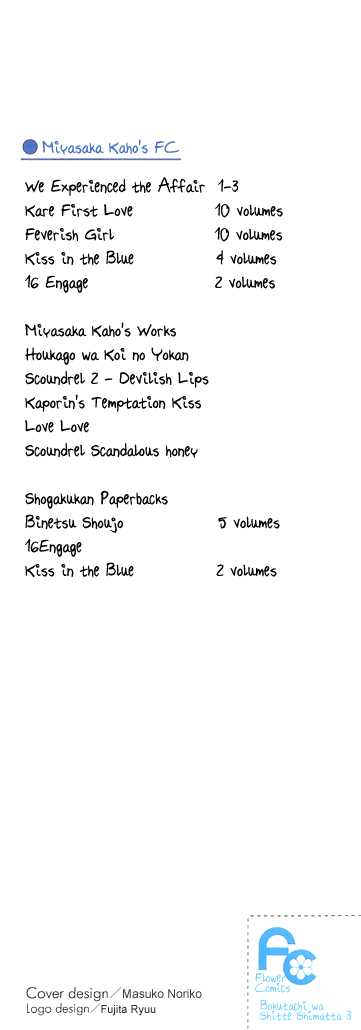 Miyasaka Kaho's FC
We Experienced the Affair 1-3
Kare First Love 10 volumes
Feverish Girl 10 volumes
Kiss in the Blue 4 volumes
16 Engage 2 volumes
Miyasaka Kaho's Works
Houkago wa Koi no Yokan
Scoundrel 2 - Devilish Lips
Kaporin's Temptation Kiss
Love Love
Scoundrel Scandalous honey
Shogakukan Paperbacks
Binetsu Shoujo 5 volumes
16Engage
Kiss in the Blue 2 volumes
Cover design／Masuko Noriko
Logo design／Fujita Ryuu
FC
Flower
Comics
Bokutachi wa
Shitte Shimatta 3